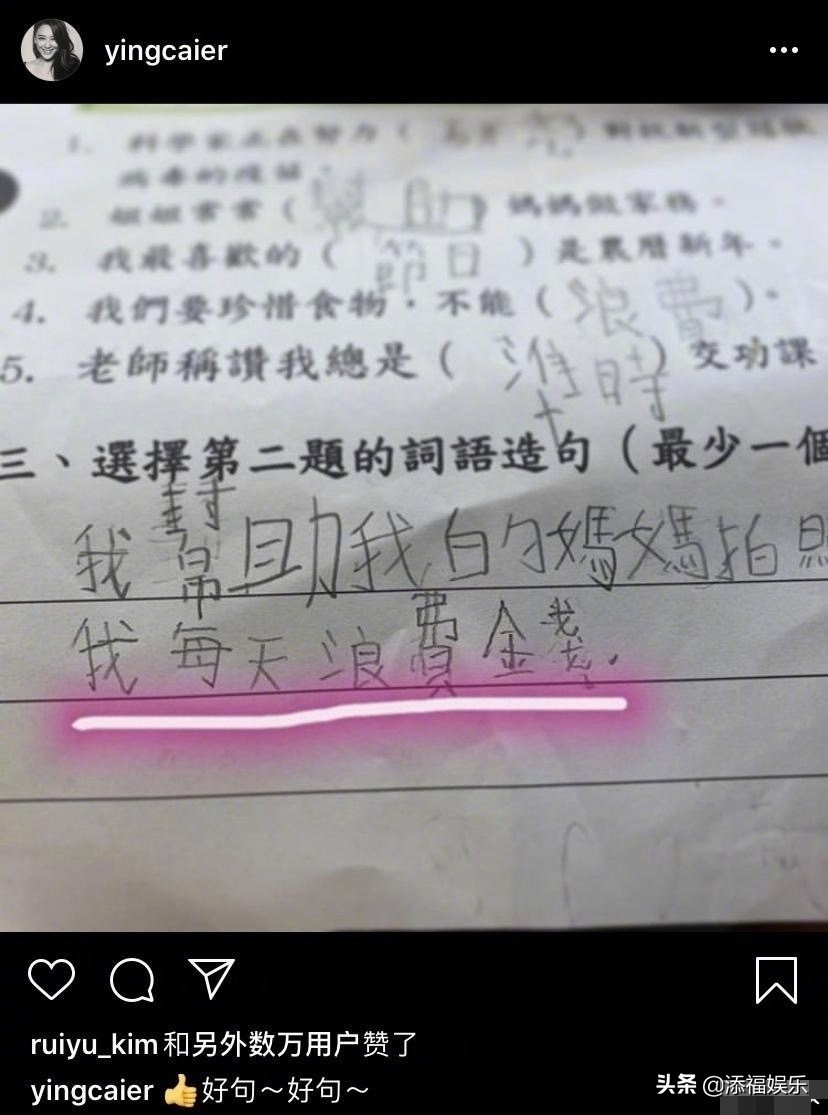 yingcaier
1. 科學家正在努力（
病毒的疫苗。
2. 姐姐常常（幫助）媽媽做家務。
3. 我最喜歡的（節日）是農曆新年。
4. 我們要珍惜食物，不能（浪費）。
5. 老師稱讚我總是（準時）交功課
三、選擇第二題的詞語造句（最少一個
我幫助我的媽媽拍照
我每天浪費金錢.
ruiyu_kim和另外数万用户赞了
yingcaier 👍好句～好句～
头条 @添福娱乐